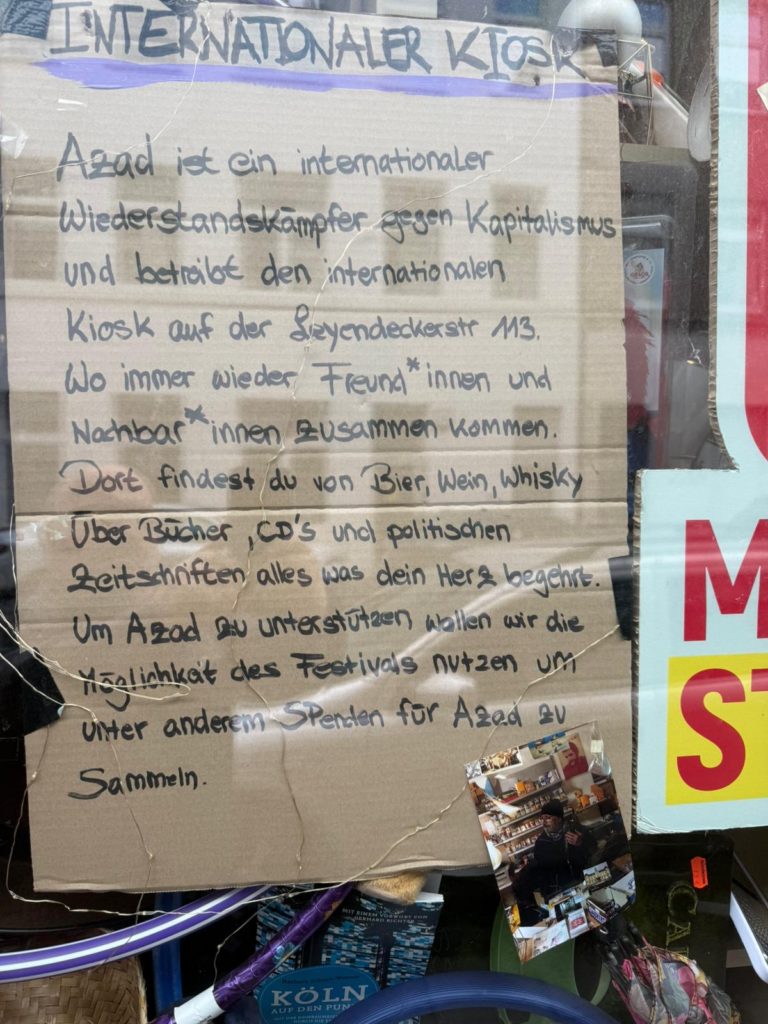 INTERNATIONALER KIOSK
Azad ist ein internationaler
Wiederstandskämpfer gegen Kapitalismus
und betreibt den internationalen
Kiosk auf der Leyendeckerstr 113.
Wo immer wieder Freund*innen und
Nachbar*innen zusammen kommen.
Dort findest du von Bier, Wein, Whisky
Über Bücher, CD's und politischen
Zeitschriften alles was dein Herz begehrt.
Um Azad zu unterstützen wollen wir die
Möglichkeit des Festivals nutzen um
unter anderem Spenden für Azad zu
Sammeln.
M
ST
MIT EINEM VORWORT VON
GERHARD RICHTER
KÖLN
AUF DEN PUN